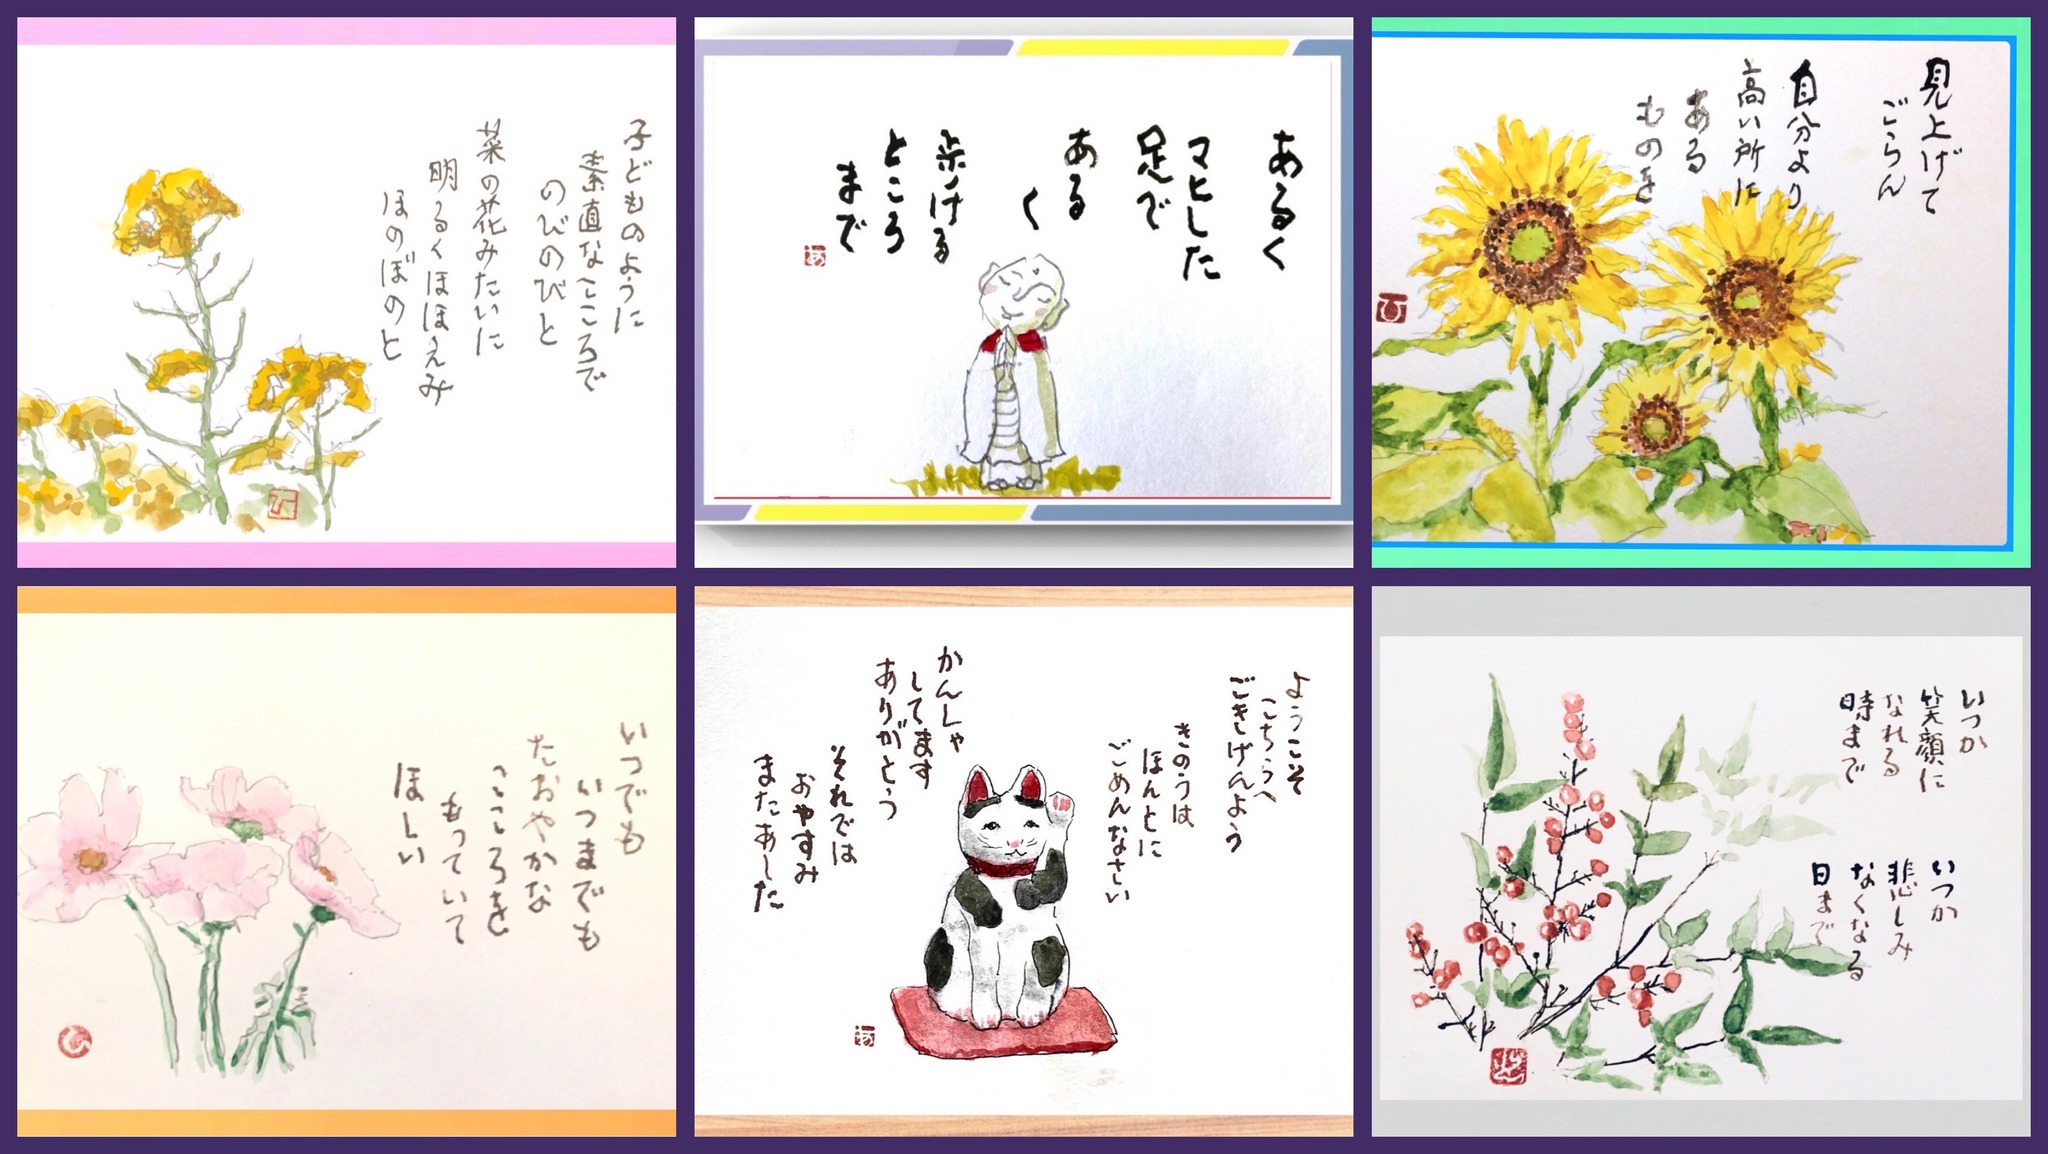 子どものように
素直なこころで
のびのびと
菜の花みたいに
明るくほほえみ
ほのぼのと
あるく
マヒした
足で
ある
く
歩ける
ところ
まで
見上げて
ごらん
自分より
高い所に
ある
ものを
いつでも
いつまでも
たおやかな
こころを
もっていて
ほしい
ようこそ
こちらへ
ごきげんよう
きのうは
ほんとに
ごめんなさい
かんしゃ
してます
ありがとう
それでは
おやすみ
またあした
いつか
笑顔に
なれる
時まで
いつか
悲しみ
なくなる
日まで